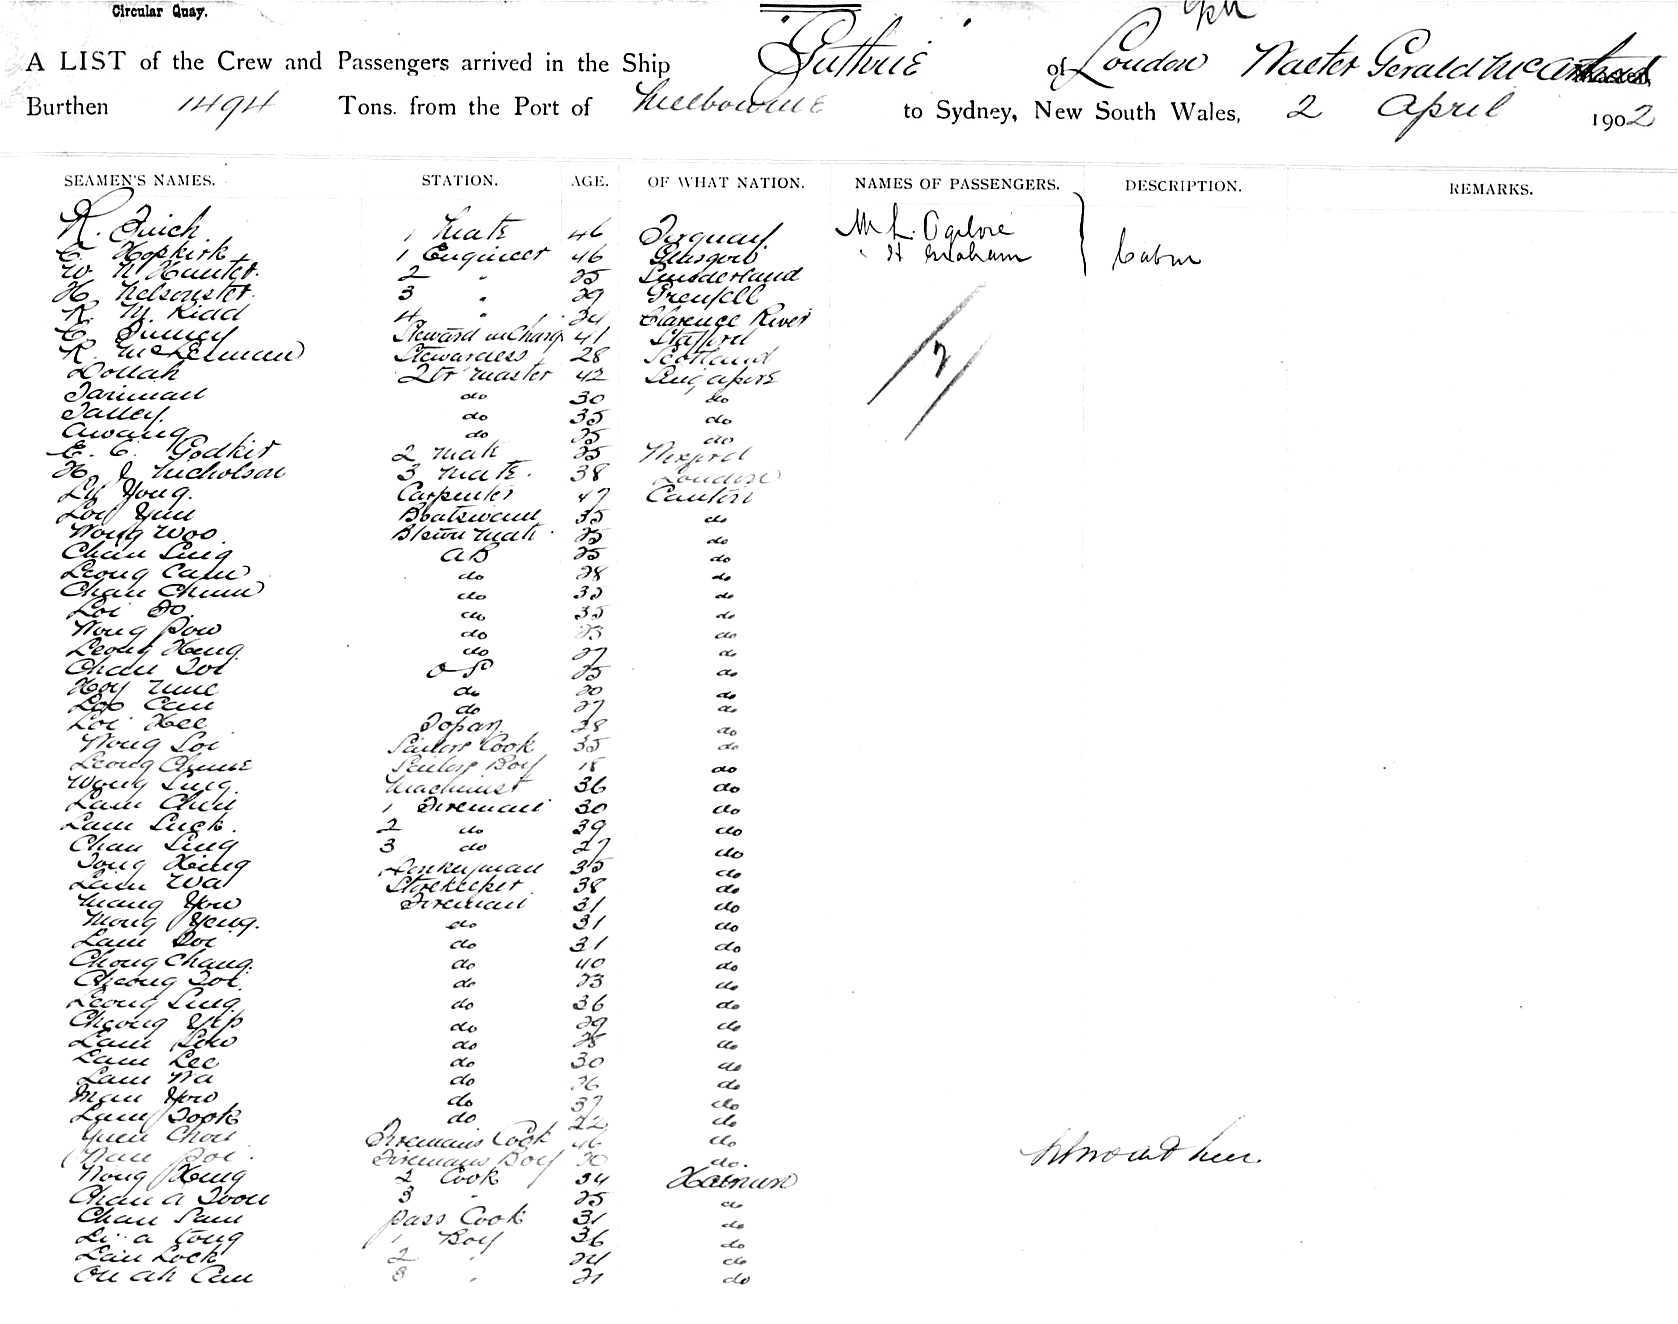 Circular Quay.
A LIST of the Crew and Passengers arrived in the Ship "Guthrie" of London Walter Gerald McArthur Master,
Burthen 1494 Tons. from the Port of Melbourne to Sydney, New South Wales, 2 April 1902
SEAMEN'S NAMES. STATION. AGE. OF WHAT NATION. NAMES OF PASSENGERS. DESCRIPTION. REMARKS.
R. 1 Mate 46 Torquay Mr L. Ogilvie
C. Hopkirk 1 Engineer 46 Glasgow " H Graham Cabin
W. N Hunter 2 " 25 Sunderland
H. 3 " 29 Grenfell
R. M. Kidd 4 " 24 Clarence River
C. Steward in Charge 41 Stafford
R. McLennan Stewardess 28 Scotland
Dollah Qtr master 42 Singapore
Tariman do 30 do
Talley do 35 do
Awang do 25 do
E. C. Godkin 2 Mate 25 Wexford
H J Nicholson 3 Mate 38 London
Yong Carpenter 47 Canton
Loy Yun Boatswain 35 do
Wong Woo Btswn mate 25 do
Chan Sing AB 25 do
Leong Cam do 28 do
Chan Chun do 32 do
Loi So do 35 do
Wong Pow do 23 do
Leong Heng do 27 do
Chan Toi OS 25 do
Hoy do 20 do
Cam do 27 do
Loi Hee Topaz 28 do
Wong Loi Sailors Cook 35 do
Leong Sailors Boy 18 do
Wong Sing Machinist 36 do
Lam Chin 1 Fireman 30 do
Lam Luck 2 do 39 do
Chan Sing 3 do 27 do
Tong Hing Donkeyman 35 do
Lam Wa Storekeeper 38 do
Mang Yow Fireman 31 do
Mong Yeng do 31 do
Lam Poi do 31 do
Chong Chang do 40 do
Cheong Toi do 23 do
Leong Sing do 36 do
Cheong Yip do 29 do
Lam do 28 do
Lam Lee do 30 do
Lam Wa do 26 do
Mam Yow do 37 do
Lam Took do 22 do
Yuen Chou Firemans Cook 46 do
Firemans Boy 20 do
Wong Heng 2 Cook 34 Hainan
Chan a Toon 3 " 25 do
Chan Sam Pass Cook 31 do
Li a Tong 1 Boy 36 do
Lam Lock 2 " 24 do
On ah Cam 3 " 21 do